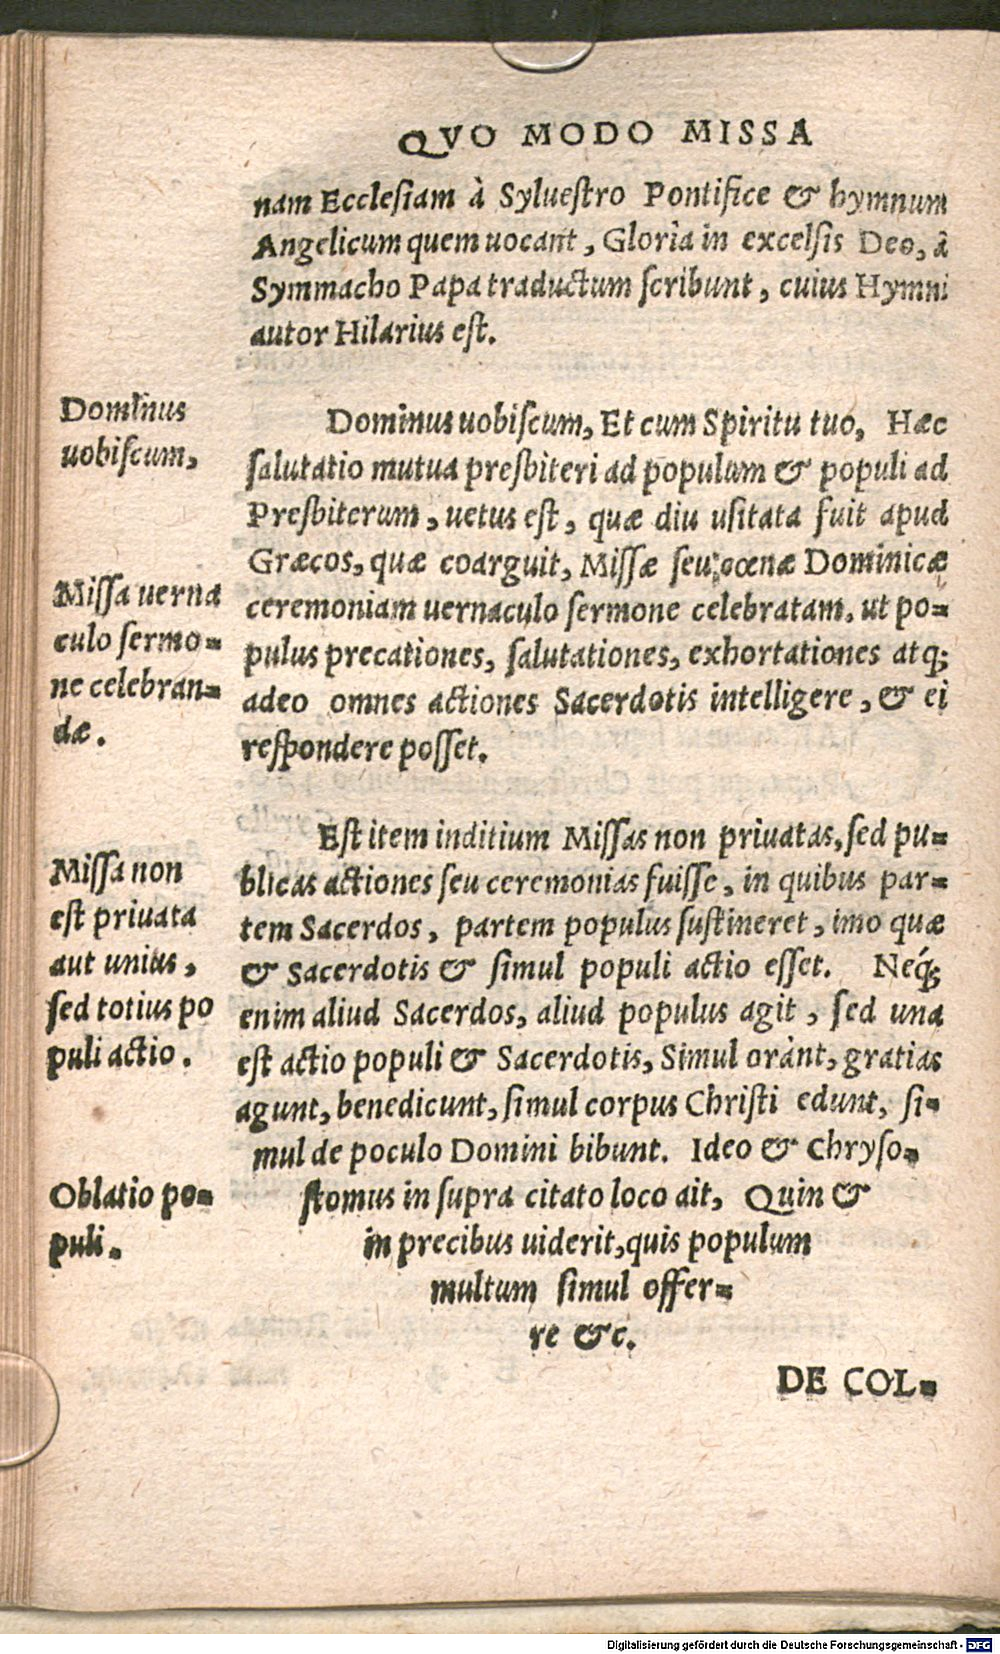 QVO MODO MISSA
nam Ecclesiam à Syluestro Pontifice & hymnum
Angelicum quem uocant, Gloria in excelsis Deo, à
Symmacho Papa traductum scribunt, cuius Hymni
autor Hilarius est.
Dominus
uobiscum,
Dominus uobiscum, Et cum Spiritu tuo, Hæc
salutatio mutua presbiteri ad populum & populi ad
Presbiterum, uetus est, quæ diu usitata fuit apud
Græcos, quæ coarguit, Missæ seu cœnæ Dominicæ
ceremoniam uernaculo sermone celebratam, ut po-
pulus precationes, salutationes, exhortationes atq;
adeo omnes actiones Sacerdotis intelligere, & ei
respondere posset.
Missa uerna
culo sermo-
ne celebran-
dæ.
Est item inditium Missas non priuatas, sed pu-
blicas actiones seu ceremonias fuisse, in quibus par-
tem Sacerdos, partem populus sustineret, imo quæ
& Sacerdotis & simul populi actio esset. Neq́;
enim aliud Sacerdos, aliud populus agit, sed una
est actio populi & Sacerdotis, Simul orant, gratias
agunt, benedicunt, simul corpus Christi edunt, si-
mul de poculo Domini bibunt. Ideo & Chryso-
stomus in supra citato loco ait, Quin &
in precibus uiderit, quis populum
multum simul offer-
re &c.
Missa non
est priuata
aut unius,
sed totius po
puli actio.
Oblatio po-
puli.
DE COL-
Digitalisierung gefördert durch die Deutsche Forschungsgemeinschaft - DFG